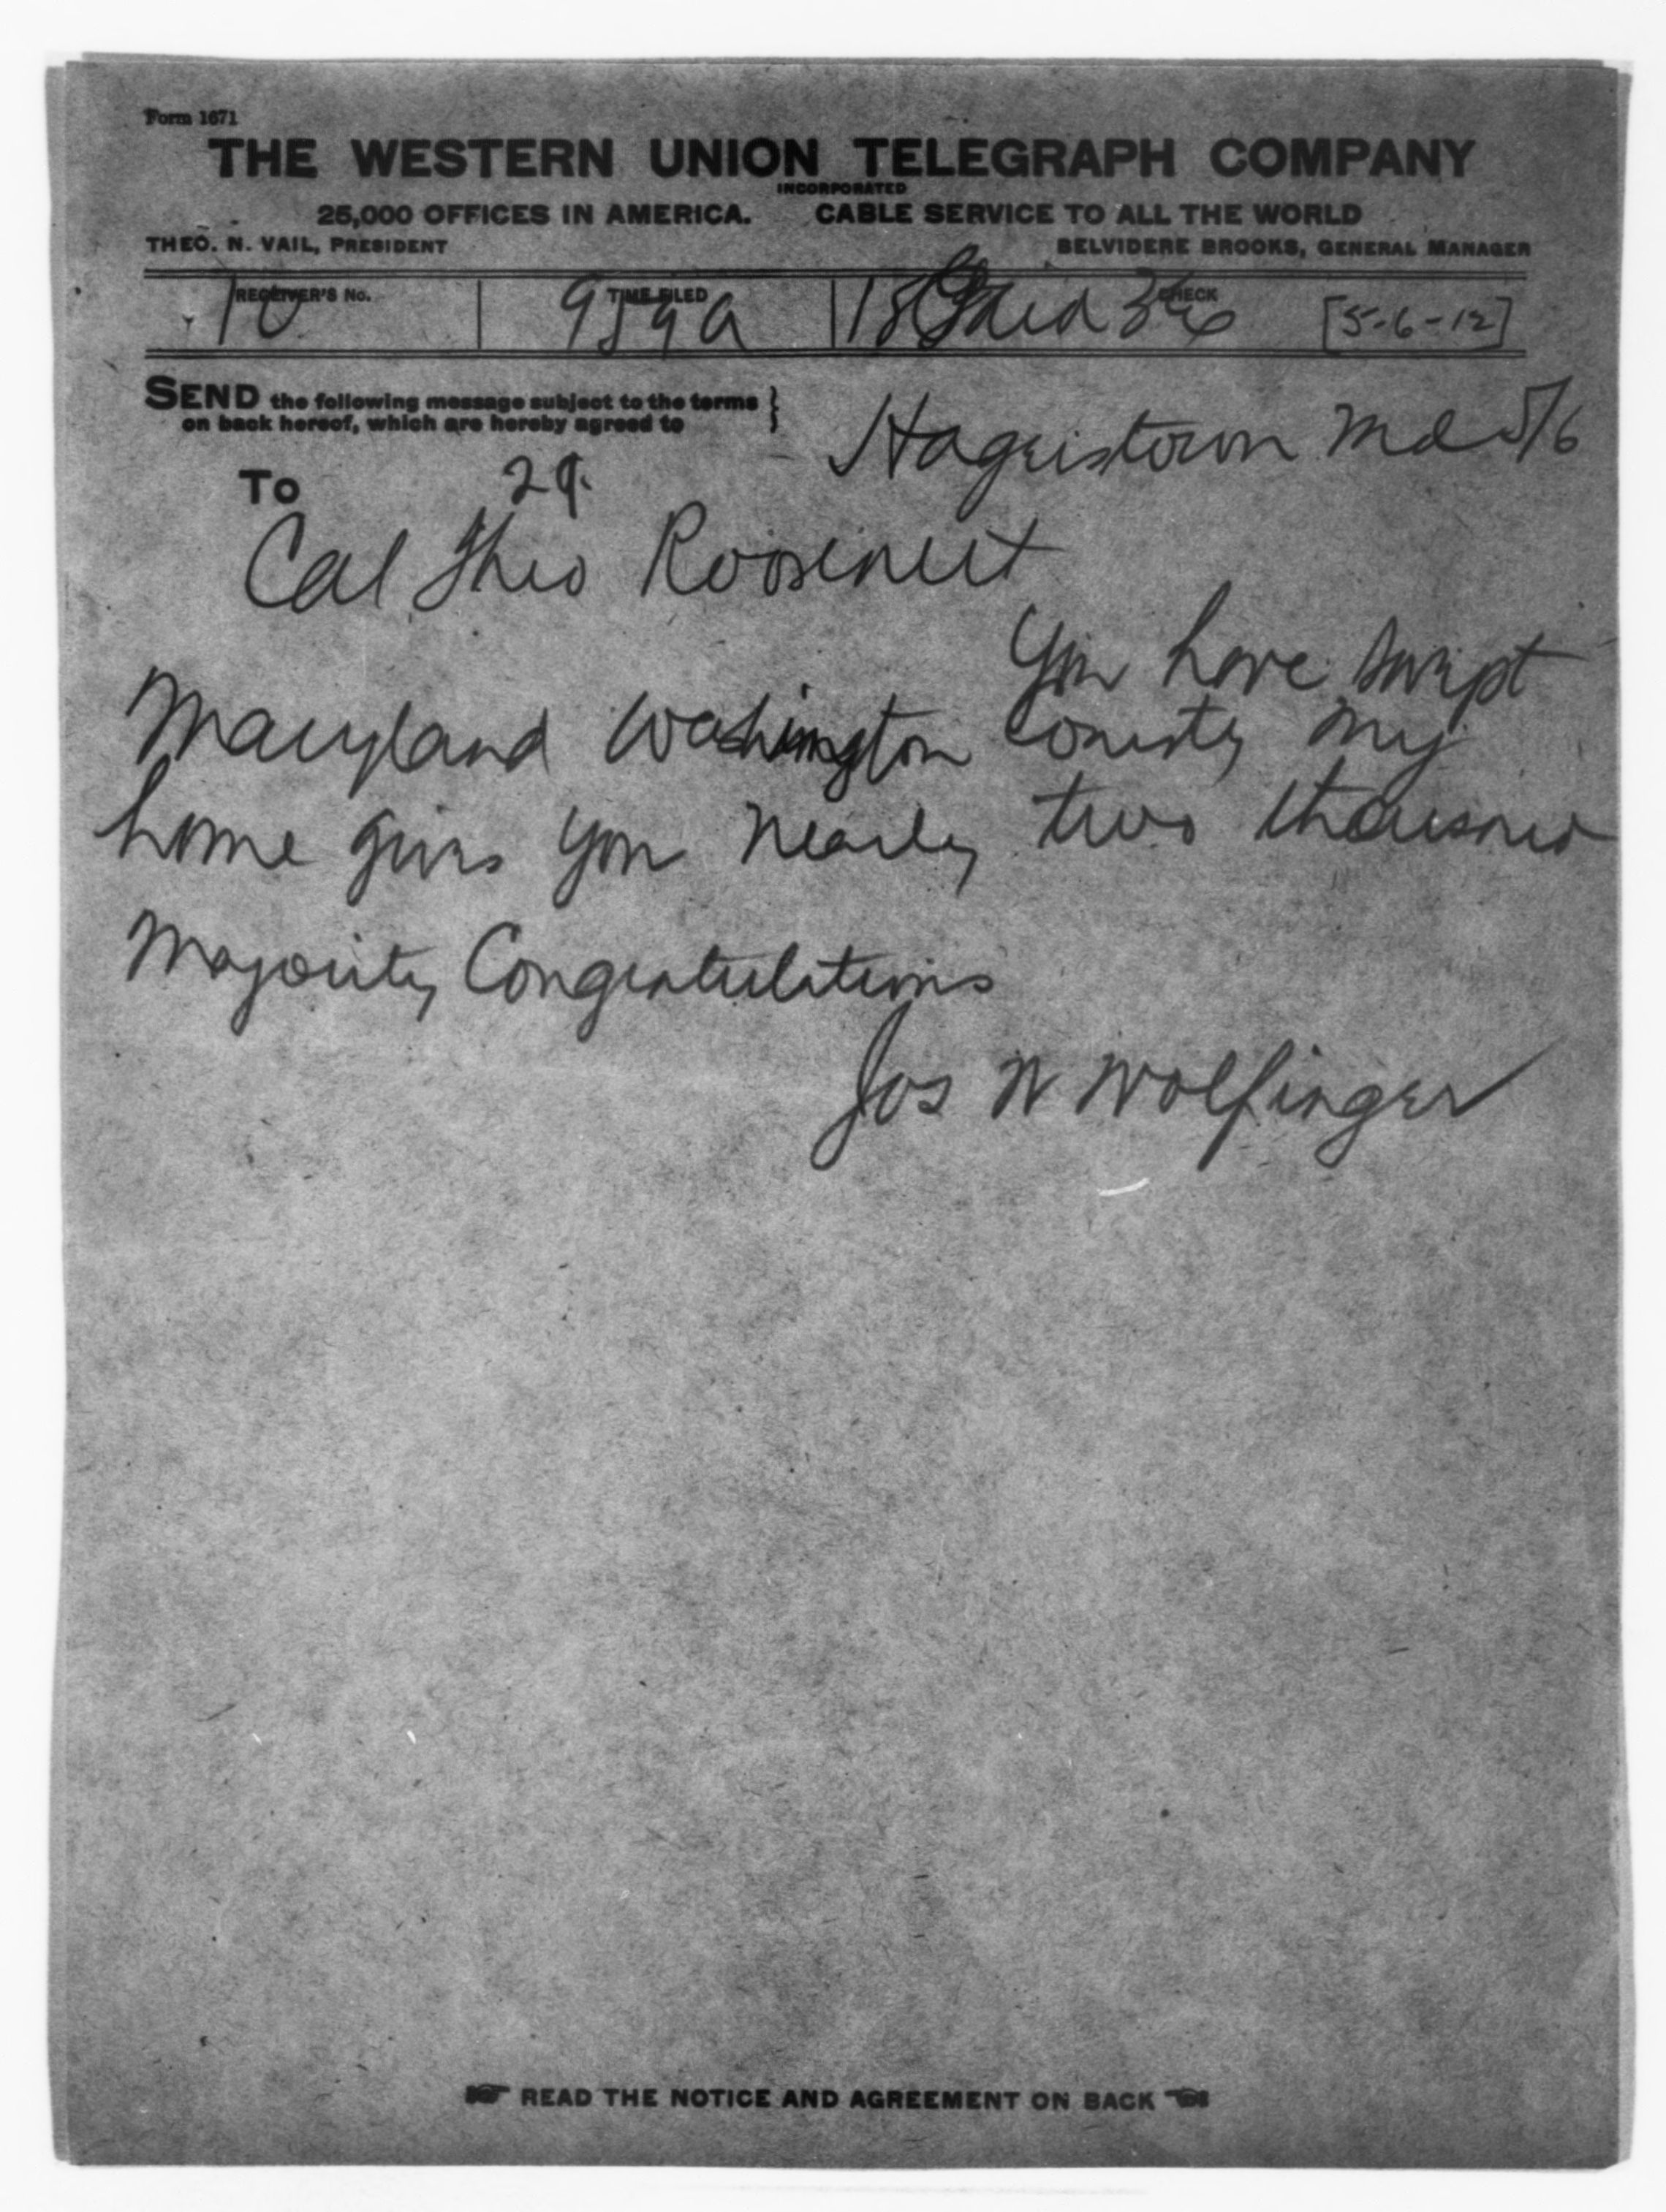 Form 1671
THE WESTERN UNION TELEGRAPH COMPANY
INCORPORATED
25,000 OFFICES IN AMERICA. CABLE SERVICE TO ALL THE WORLD
THEO. N. VAIL, PRESIDENT BELVIDERE BROOKS, GENERAL MANAGER
RECEIVER'S No. TIME FILED CHECK
10 959a 18 Paid [5-6-12]
SEND the following message subject to the terms
on back hereof, which are hereby agreed to
Hagerstown Md 5/6
To 29.
Col Theo Roosevelt
You have swept
Maryland Washington County my
home gives you nearly two thousand
Majority Congratulations
Jos W Wolfinger
READ THE NOTICE AND AGREEMENT ON BACK